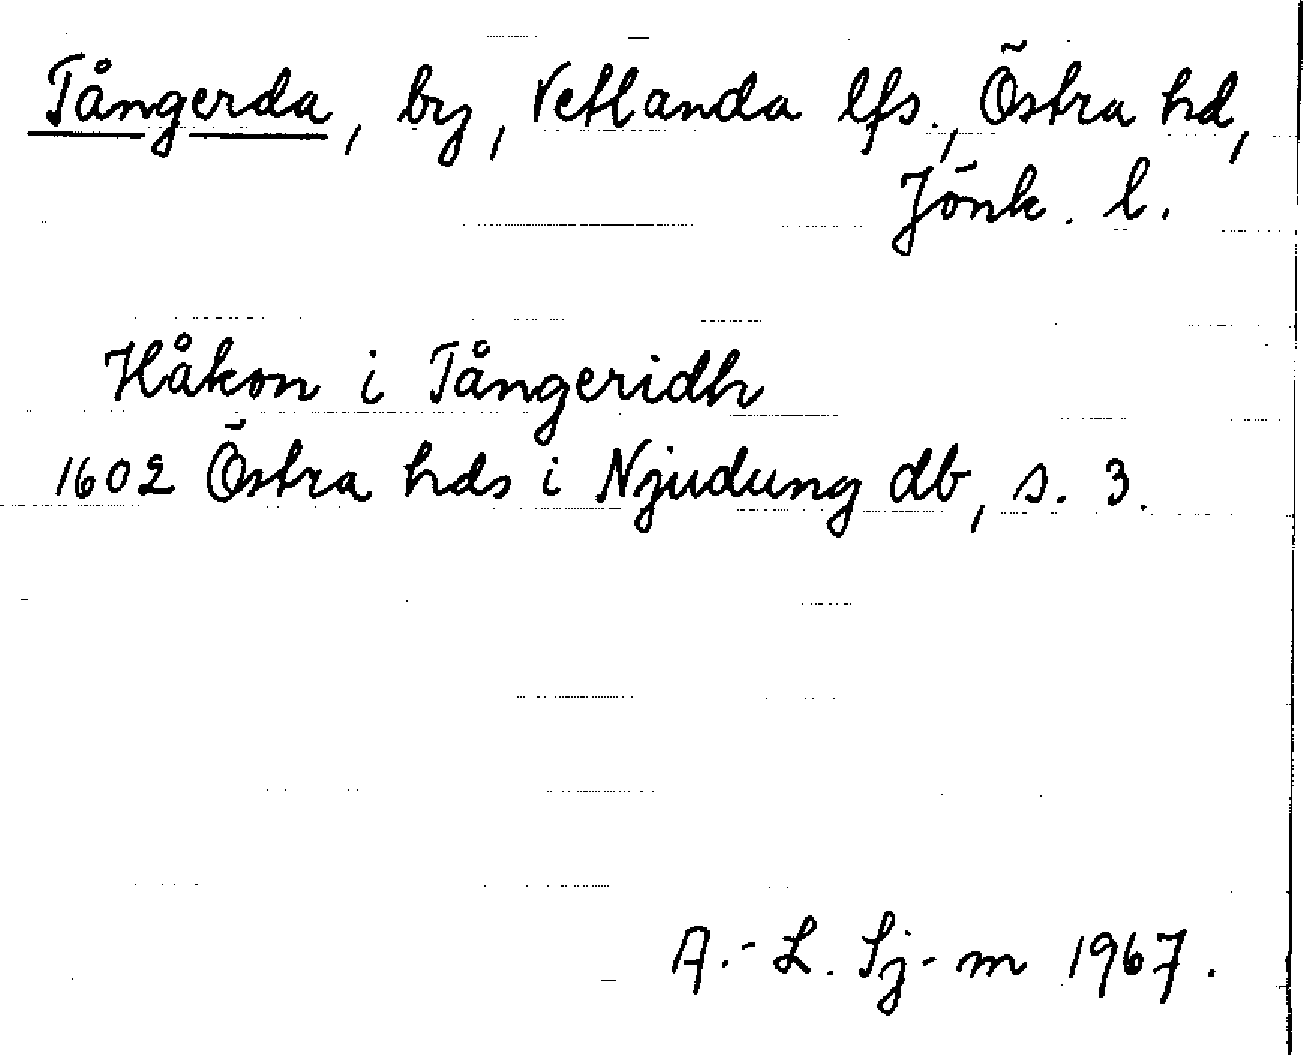 Tångerda, by, Vetlanda lfs., Östra hd,
Jönk. l.
Håkon i Tångeridh
1602 Östra hds i Njudung db, s. 3.
A.-L. Sj-m 1967.